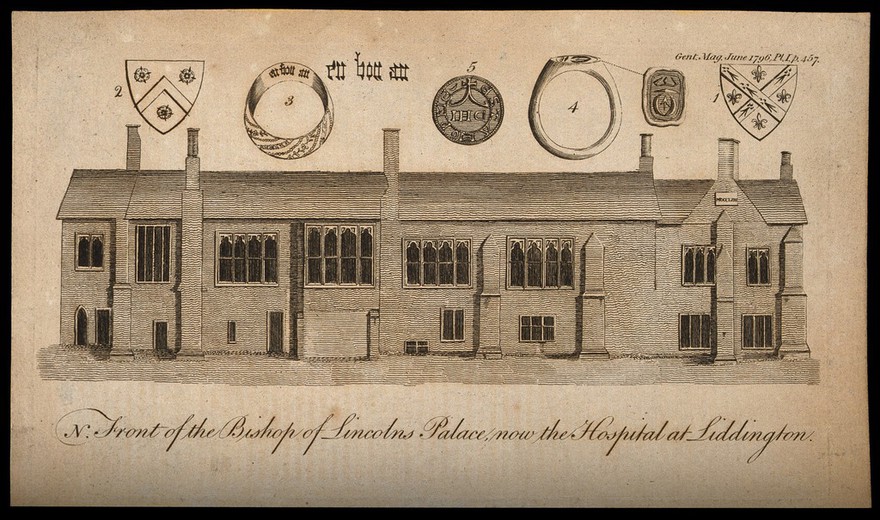 Gent. Mag. June 1796. Pl. I. p. 457.
2
en bon an
3
en bon an
5
4
1
N. Front of the Bishop of Lincolns Palace, now the Hospital at Liddington.